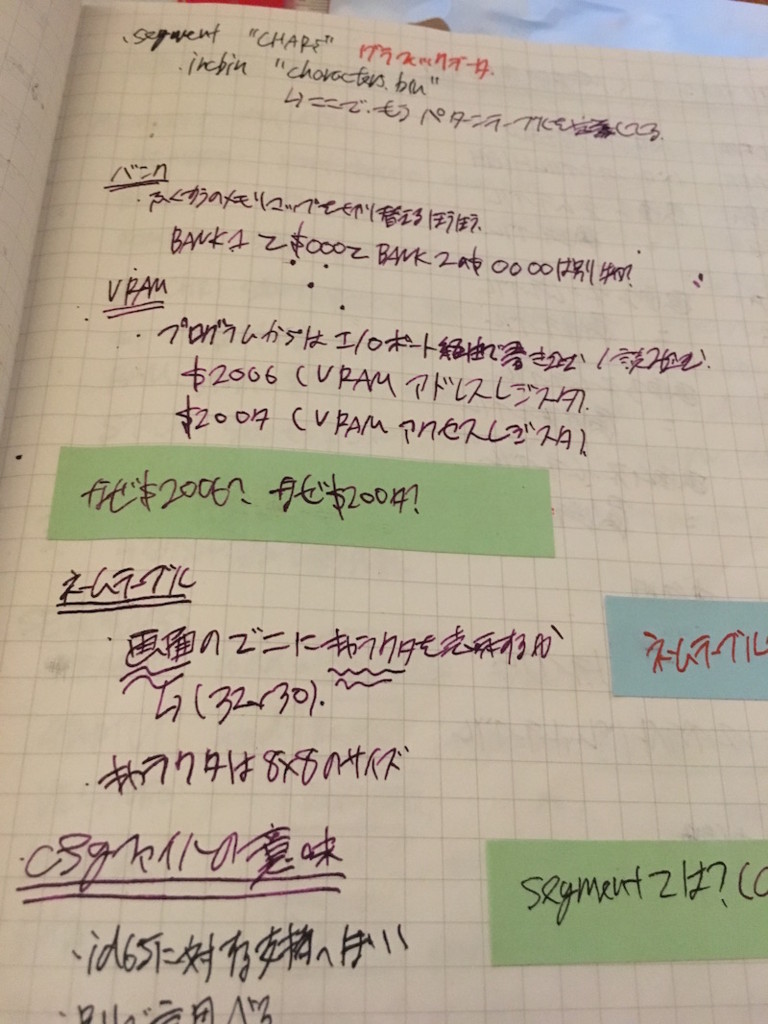 .segment "CHARS" グラフィックデータ
.incbin "characters.bin"
↳ ここで、もう パターンテーブルを
バンク
・ふくすうのメモリマップを切り替えるほうほう
BANK1 で $000と BANK2の$0000は別
VRAM
・プログラムからは I/Oポート経由で書き込む / 読み込む
$2006 (VRAM アドレスレジスタ)
$2007 (VRAM アクセスレジスタ)
なぜ$2006? なぜ$2007?
ネームテーブル
・画面のどこにキャラクタを表示するか
↳ (32×30).
ネームテーブル
・キャラクタは8x8のサイズ
.cfgファイルの意味
segmentとは? (
・ld65に対する